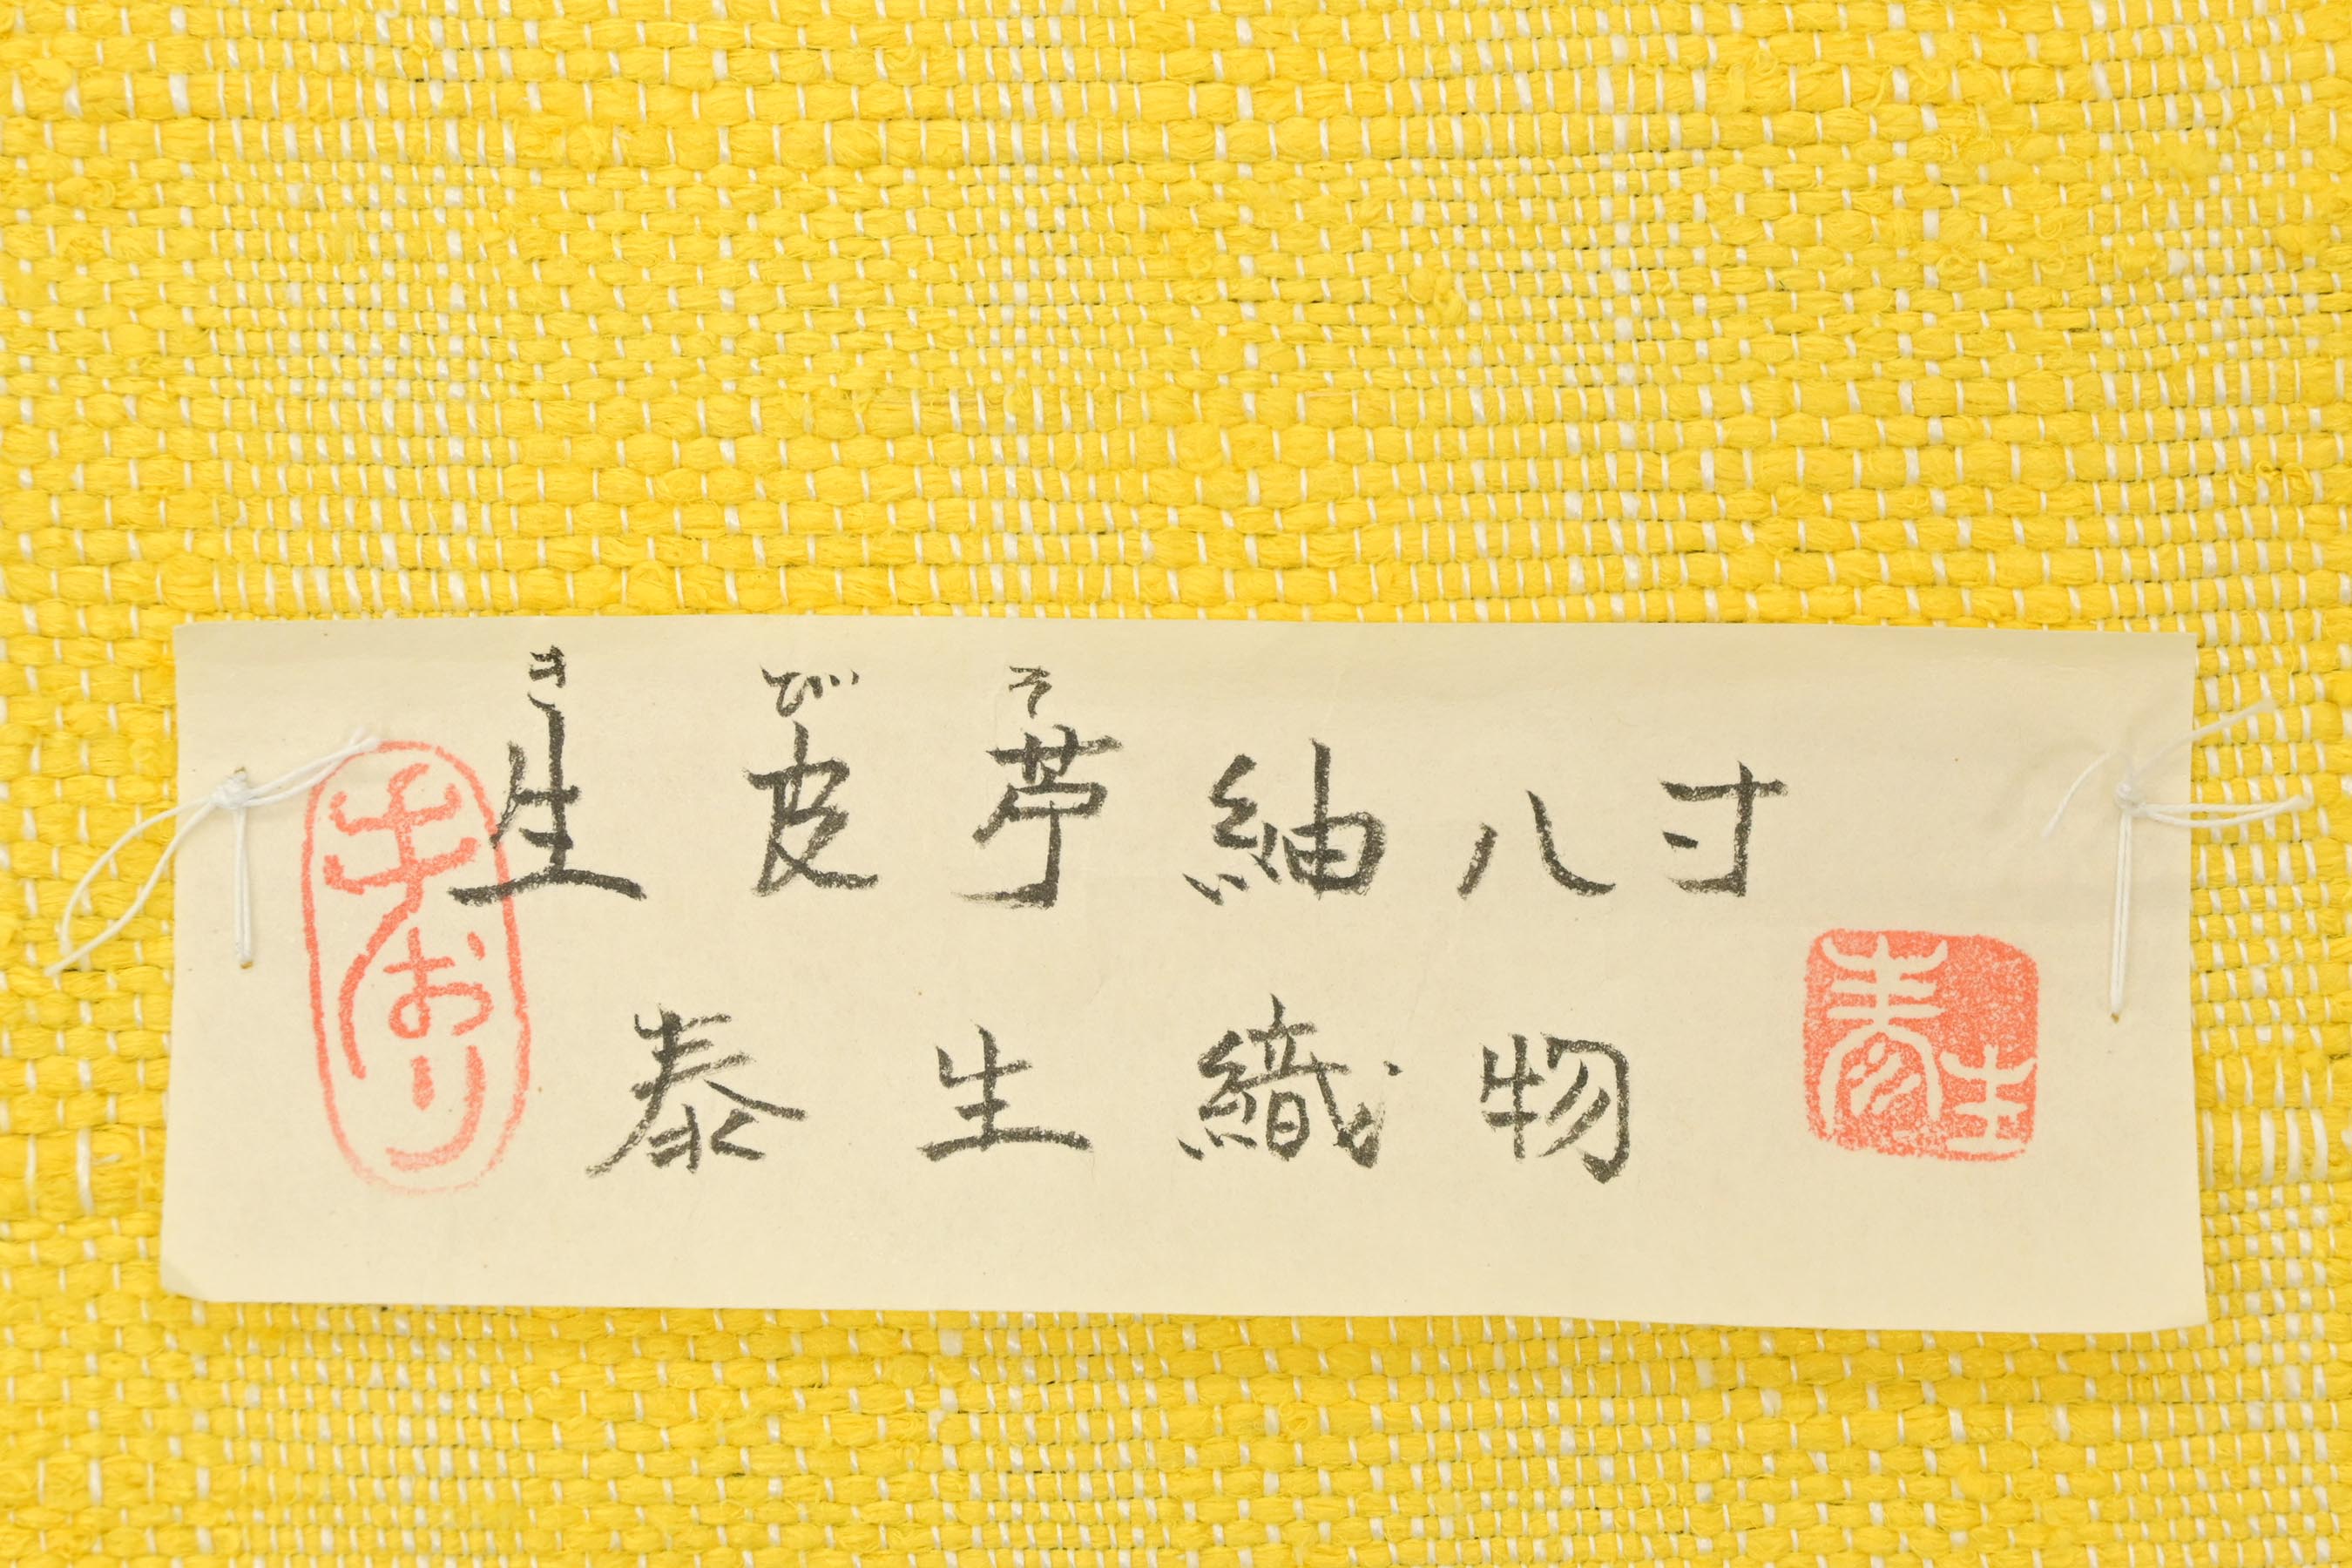 きびそ
生皮苧紬八寸
泰生織物
手おり
泰生